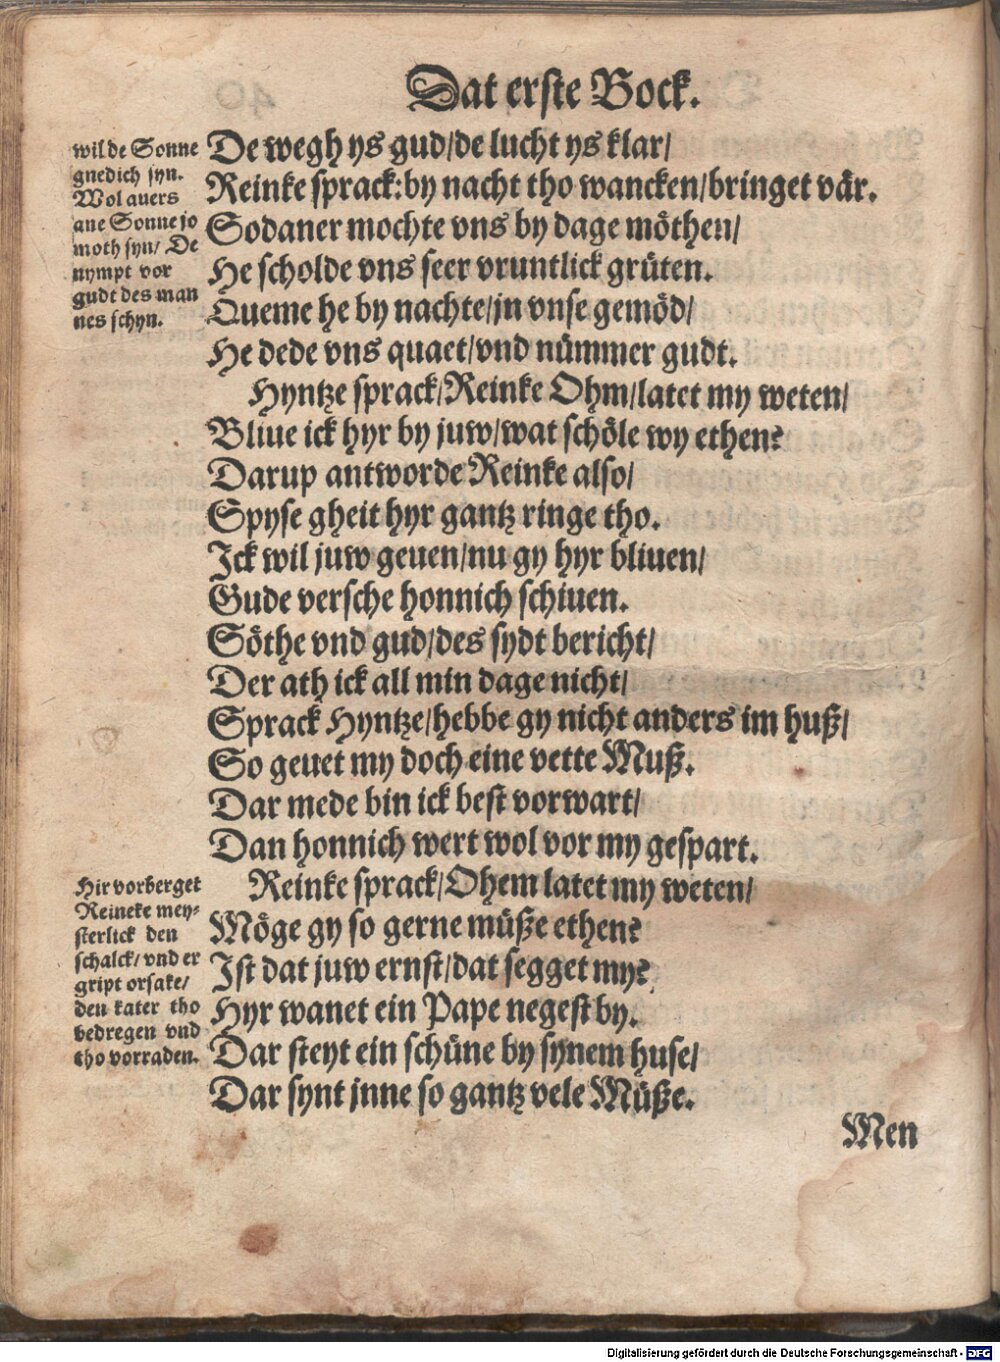 Dat erste Bock.
wilde Sonne
gnedich syn.
Wol auers
ane Sonne jo
moth syn/ De
nympt vor
gudt des man
nes schyn.
De wegh ys gud/de lucht ys klar/
Reinke sprack:by nacht tho wancken/bringet vär.
Sodaner mochte vns by dage möthen/
He scholde vns seer vruntlick grüten.
Queme he by nachte/jn vnse gemöd/
He dede vns quaet/vnd nümmer gudt.
Hyntze sprack/Reinke Ohm/latet my weten/
Bliue ick hyr by juw/wat schöle wy ethen?
Darup antworde Reinke also/
Spyse gheit hyr gantz ringe tho.
Ick wil juw geuen/nu gy hyr bliuen/
Gude versche honnich schiuen.
Söthe vnd gud/des sydt bericht/
Der ath ick all min dage nicht/
Sprack Hyntze/hebbe gy nicht anders im huß/
So geuet my doch eine vette Muß.
Dar mede bin ick best vorwart/
Dan honnich wert wol vor my gespart.
Hir vorberget
Reineke mey-
sterlick den
schalck/vnd er
gript orsake/
den kater tho
bedregen vnd
tho vorraden.
Reinke sprack/Ohem latet my weten/
Möge gy so gerne müße ethen?
Ist dat juw ernst/dat segget my?
Hyr wanet ein Pape negest by.
Dar steyt ein schüne by synem huse/
Dar synt jnne so gantz vele Müße.
Men
Digitalisierung gefördert durch die Deutsche Forschungsgemeinschaft - DFG